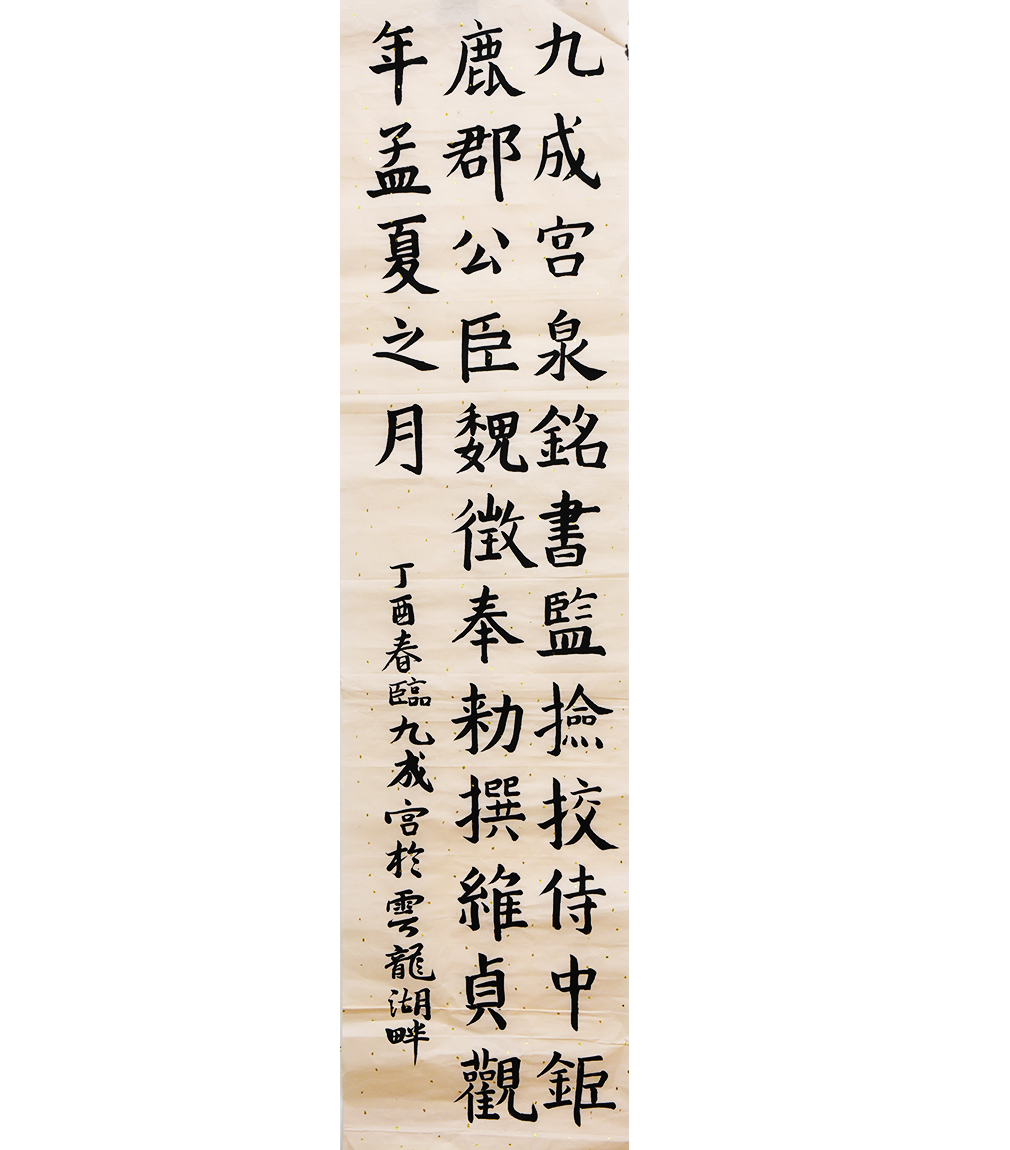 九成宮泉銘書監撿挍侍中鉅
鹿郡公臣魏徵奉勑撰維貞觀
年孟夏之月
丁酉春臨九成宮於雲龍湖畔